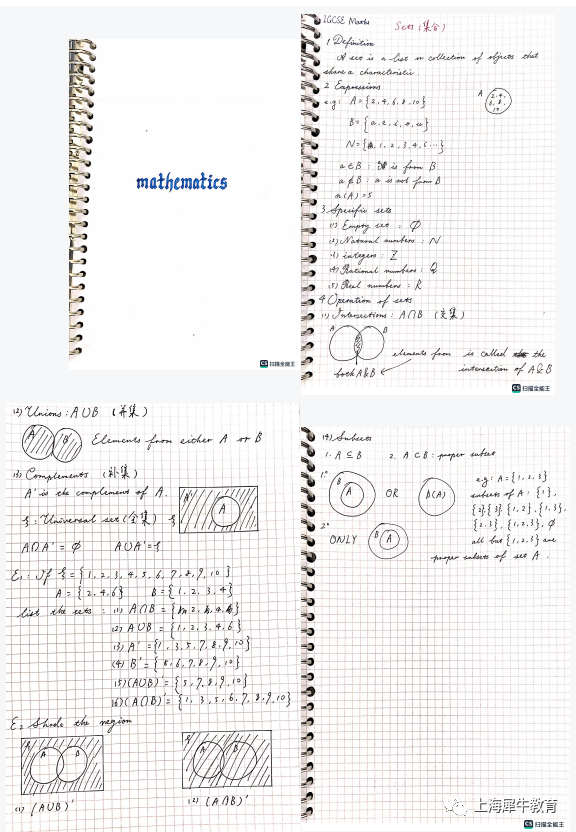 mathematics
CS 扫描全能王
IGCSE Maths
Sets (集合)
1 Definition
A set is a list or collection of objects that
share a characteristic.
2 Expressions
e.g: A = {2, 4, 6, 8, 10}
A
2, 4,
6, 8,
10
B = {a, e, i, o, u}
N = { , 1, 2, 3, 4, 5 ...}
a ∈ B : is from B
a ∉ B : a is not from B
n(A) = 5
3 Specific sets
(1) Empty set : Ø
(2) Natural numbers : N
(3) integers : Z
(4) Rational numbers : Q
(5) Real numbers : R
4 Operation of sets
(1) Intersections : A∩B (交集)
A B
elements from is called the
both A&B intersection of A&B
CS 扫描全能王
(2) Unions : A∪B (并集)
A B Elements from either A or B
(3) Complements (补集)
A' is the complement of A.
A' A
ξ : Universal set (全集) ξ
A∩A' = Ø A∪A' = ξ
E1: If ξ = {1, 2, 3, 4, 5, 6, 7, 8, 9, 10}
A = {2, 4, 6} B = {1, 2, 3, 4}
list the sets : (1) A∩B = {2, 4}
(2) A∪B = {1, 2, 3, 4, 6}
(3) A' = {1, 3, 5, 7, 8, 9, 10}
(4) B' = {5, 6, 7, 8, 9, 10}
(5) (A∪B)' = {5, 7, 8, 9, 10}
(6) (A∩B)' = {1, 3, 5, 6, 7, 8, 9, 10}
E2 Shade the region
ξ A B
ξ A B
(1) (A∪B)' (2) (A∩B)'
(4) Subsets
1. A ⊆ B 2. A ⊂ B : proper subset
1° B A OR B(A)
e.g: A = {1, 2, 3}
subsets of A : {1},
{2} {3} {1, 2}, {1, 3},
{2, 3}, {1, 2, 3}, Ø
2° ONLY B A
all but {1, 2, 3} are
proper subsets of set A.
上海犀牛教育
CS 扫描全能王